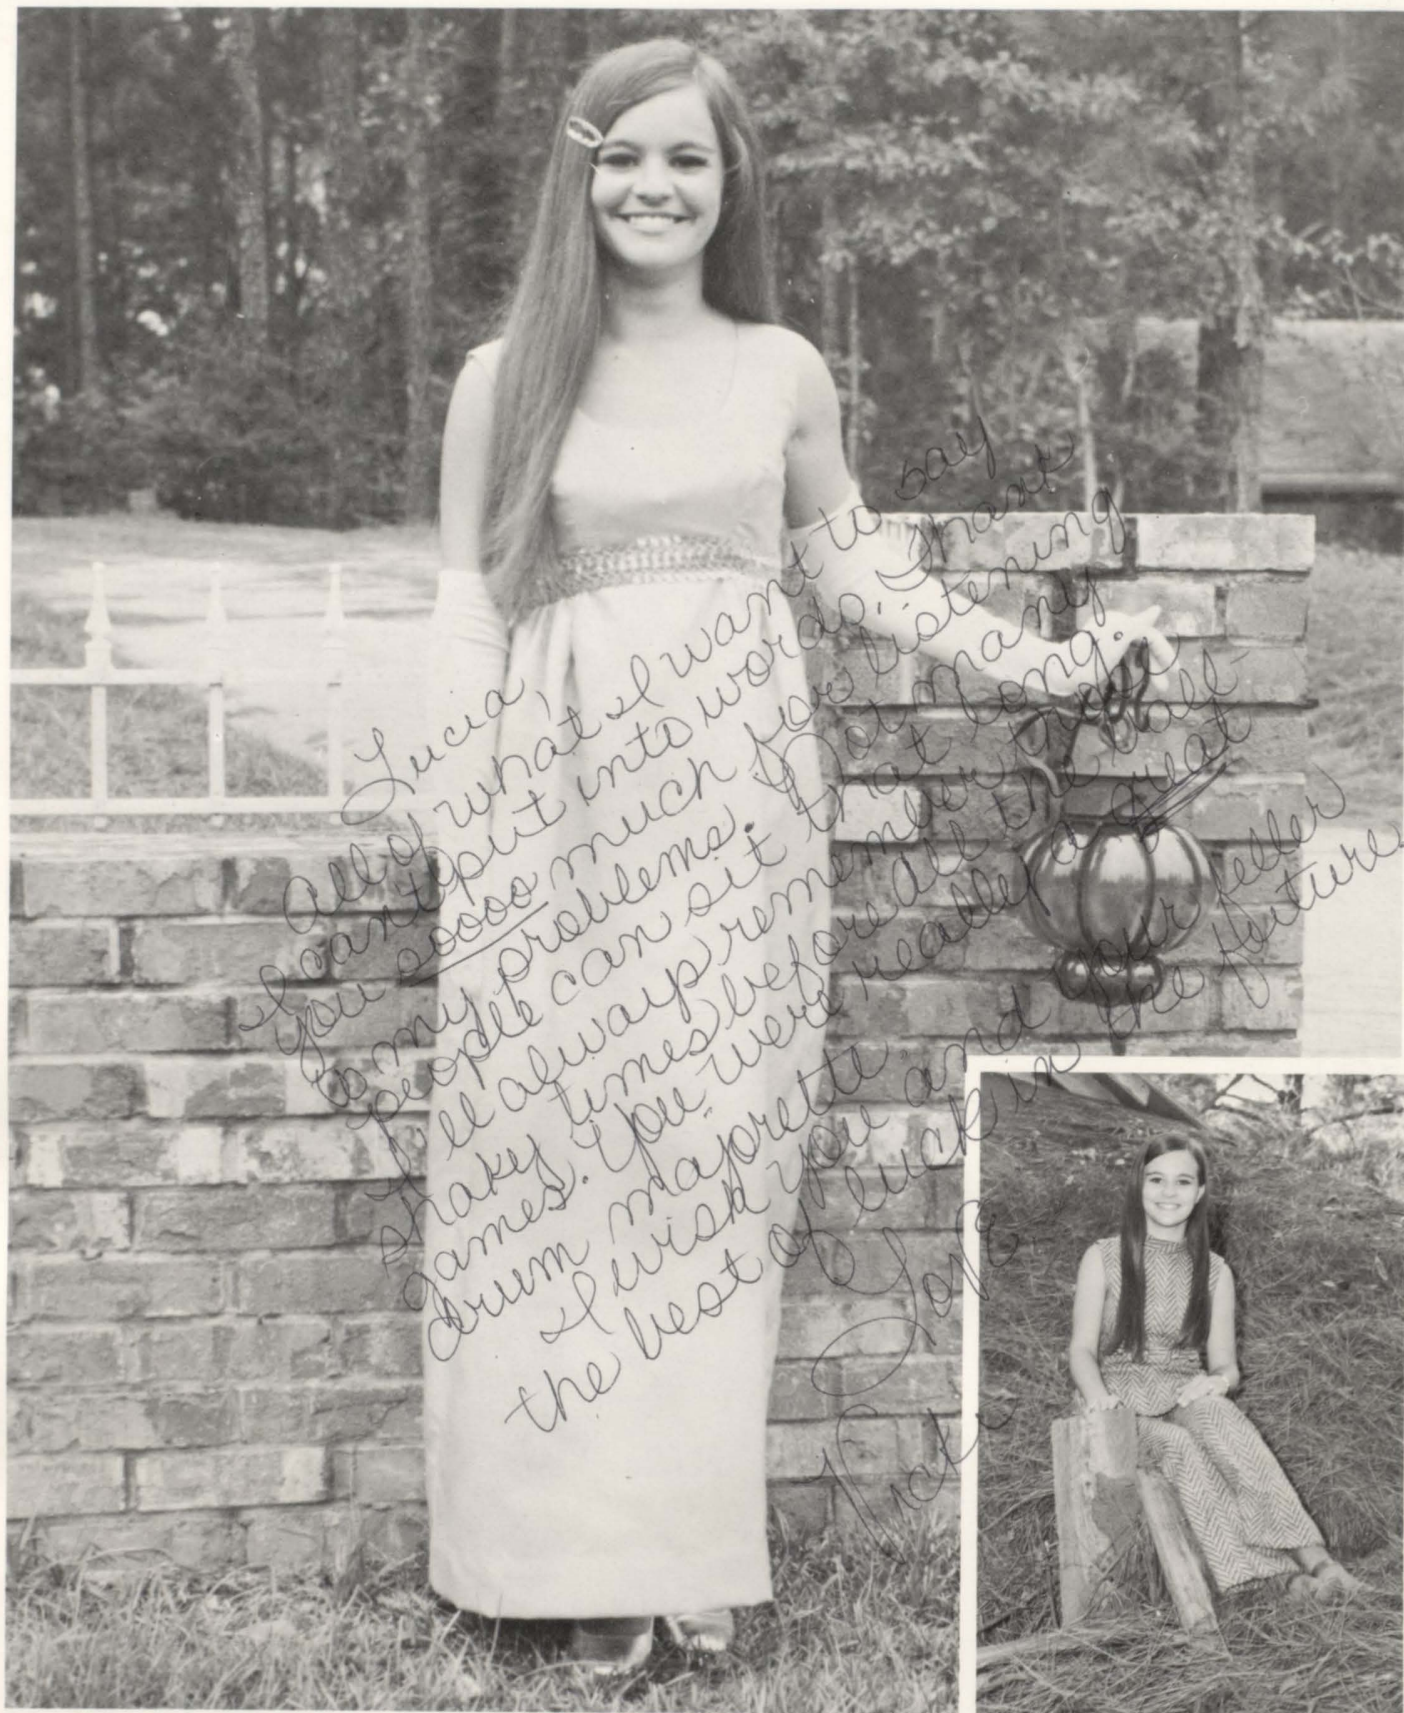 Lucia,
All of what I want to say
I can't put into words. Thank
you soooo much for listening
to my problems. Not many
people can sit that long.
I'll always remember
shaky times before all the ball-
games. You were really a great
drum majorette.
I wish you and your feller
the best of luck in the future.
Love